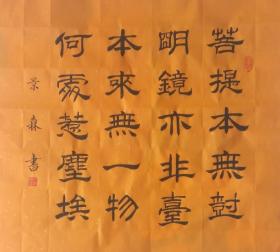 菩提本無樹
明鏡亦非臺
本來無一物
何處惹塵埃
景森書